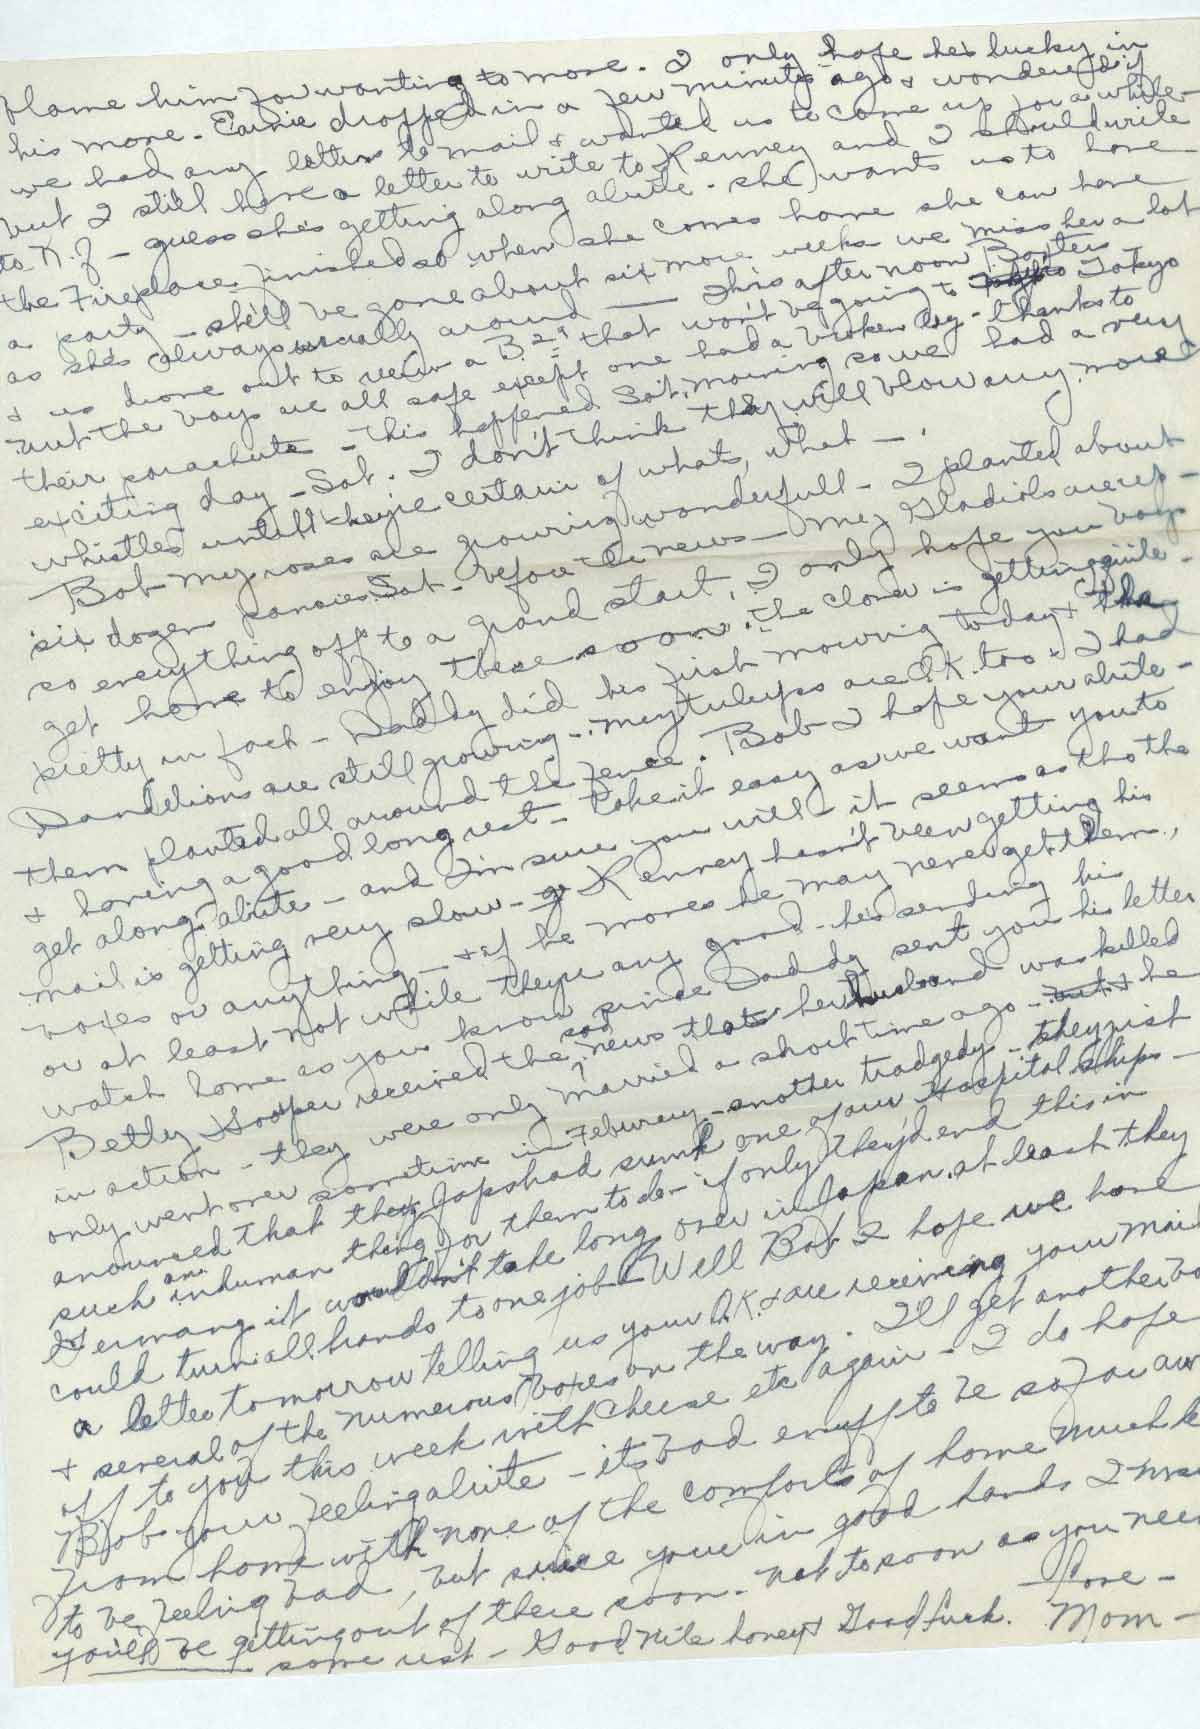 blame him for wanting to move. I only hope he's lucky in
his move - Earnie dropped in a few minutes ago & wondered if
we had any letters to mail & wanted us to come up for a while -
but I still have a letter to write to Kenney and I should write
to K.J - guess she's getting along alrite - she wants us to have
the Fireplace finished so when she comes home she can have
a party - she'll be gone about six more weeks we miss her a lot
as she's always usually around — This afternoon Baxters
& us drove out to view a B.29 that won't be going to Tokyo
but the boys are all safe except one had a broken leg - thanks to
their parachute - This happened Sat. morning so we had a very
exciting day - Sat. I don't think they will blow any more
whistles untill they're certain of what's, what -
Bob my roses are growing wonderfull - I planted about
six dozen pansies Sat - before the news - my Gladiols are up -
so everything off to a grand start, I only hope you boys
get home to enjoy these soon. The clover is getting quite
pretty in fact - Daddy did his first mowing today & the
Dandelions are still growing - my tuleps are O.K. too - I had
them planted all around the fence. Bob I hope your alrite -
& having a good long rest - take it easy as we want you to
get along alrite - and I'm sure you will - it seems as tho the
mail is getting very slow - Kenney hasn't been getting his
boxes or anything - & if he moves he may never get them,
or at least not while they're any good - he's sending his
watch home as you know since Daddy sent you his letter
Betty Hooper received the sad news that her husband was killed
in action - they were only married a short time ago - & he
only went over sometime in Feburery - another tradgedy - they just
anounced that the Japs had sunk one of our Hospital Ships -
such an inhuman thing for them to do - if only they'd end this in
Germany it wouldn't take long over in Japan, at least they
could turn all hands to one job - Well Bob I hope we have
a letter tomorrow telling us your O.K. & are receiving your mail
& several of the numerous boxes on the way. I'll get another
off to you this week with cheese etc again - I do hope
Bob your feeling alrite - its bad enuff to be so far
from home with none of the comforts of home much
to be feeling bad, but since your in good hands I
you'll be getting out of there soon - not to soon as you need
some rest - Good nite honey & Good luck. Love -
Mom -